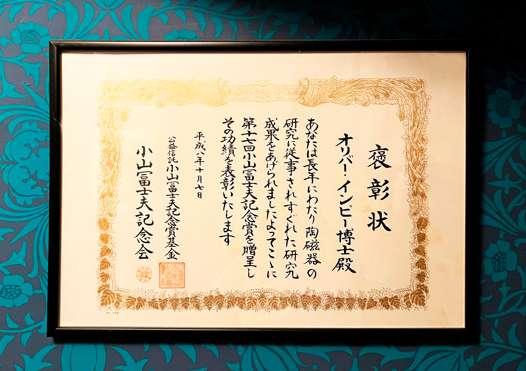 褒彰状
オリバー・インピー博士殿
あなたは長年にわたり陶磁器の
研究に従事されすぐれた研究
成果をあげられましたよってここに
第十七回小山冨士夫記念賞を贈呈し
その功績を表彰いたします
平成八年十月七日
公益信託小山冨士夫記念賞基金
小山冨士夫記念会